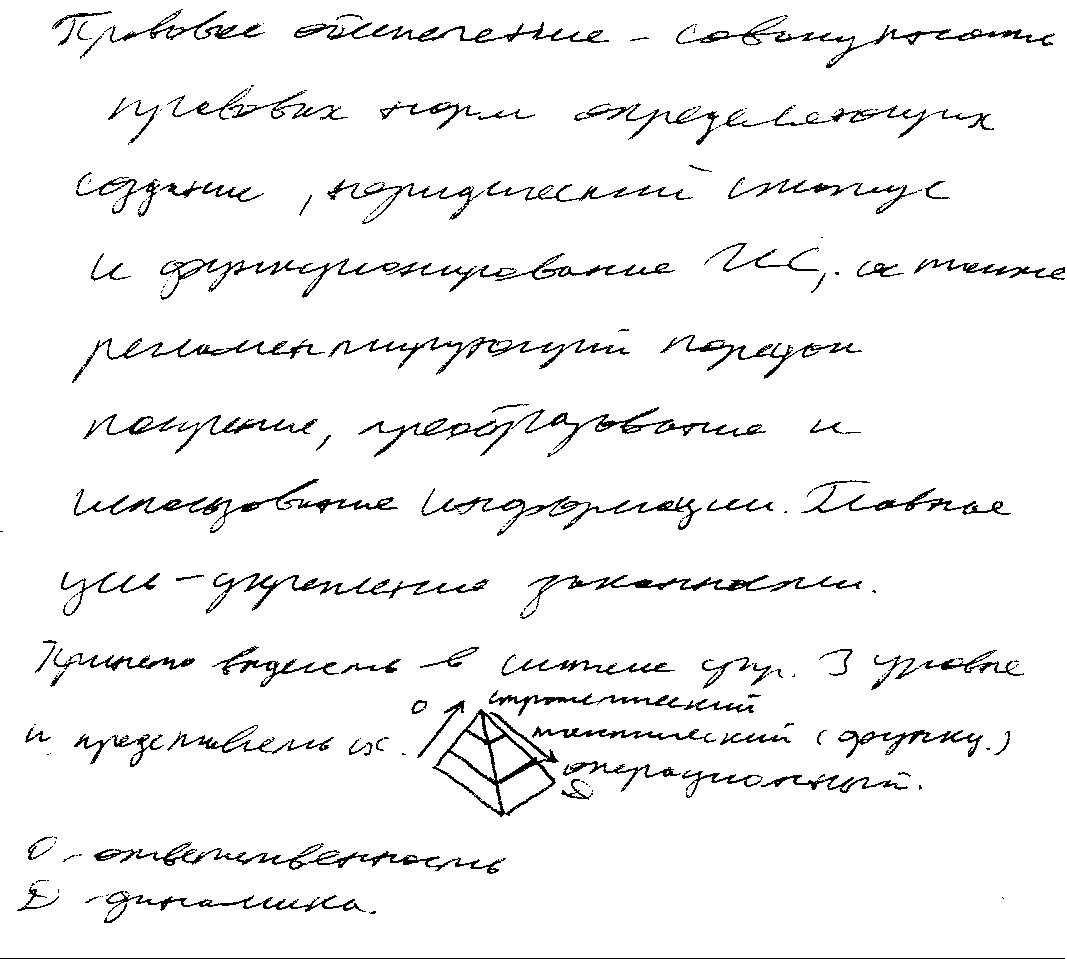 Правовое обеспечение – совокупность
правовых норм определяющих
создание, юридический статус
и функционирование ИС, а также
регламентирующий порядок
получение, преобразование и
использование информации. Главное
цель – укрепление законности.
Принято выделять в системе упр. 3 уровня
О стратегический
и представлять их. тактический (функц.)
операционный.
Д
О – ответственность
Д – динамика.